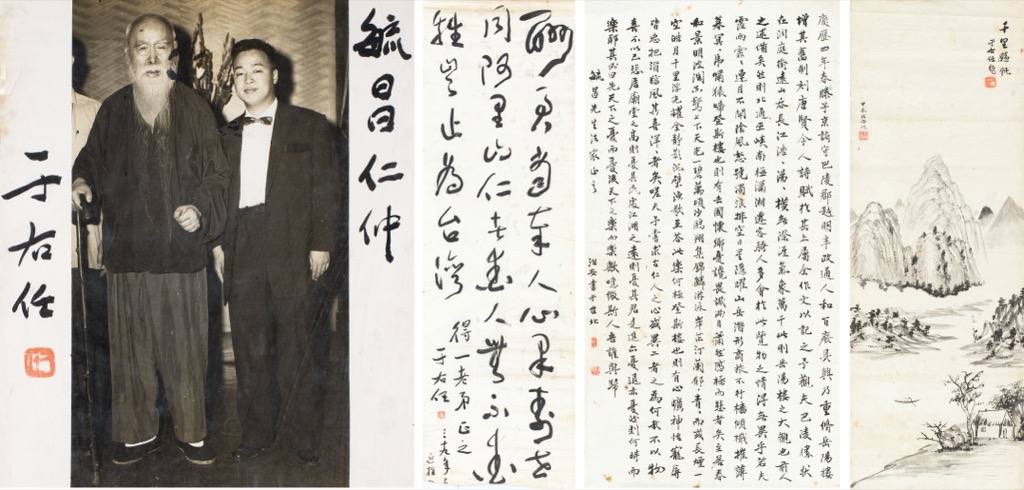 毓昌仁仲
于右任
酬勇當年人心果壽世
同阿里山仁者愛人無不愛
牲豈止為台灣
得一老弟正之
于右任
慶曆四年春滕子京謫守巴陵郡越明年政通人和百廢具興乃重脩岳陽樓
增其舊制刻唐賢今人詩賦於其上屬余作文以記之予觀夫巴陵勝狀
在洞庭銜遠山吞長江浩浩湯湯橫無際涯氣象萬千此則岳陽樓之大觀也前人
之述備矣然則北通巫峽南極瀟湘遷客騷人多會於此覽物之情得無異乎若夫
霪雨霏霏連月不開陰風怒號濁浪排空日星隱曜山岳潛形商旅不行檣傾楫摧薄
暮冥冥虎嘯猿啼登斯樓也則有去國懷鄉憂讒畏譏滿目蕭然感極而悲者矣至若春
和景明波瀾不驚上下天光一碧萬頃沙鷗翔集錦鱗游泳岸芷汀蘭郁郁青青而或長煙一
空皓月千里浮光耀金靜影沉璧漁歌互答此樂何極登斯樓也則有心曠神怡寵辱
皆忘把酒臨風其喜洋洋者矣嗟夫予嘗求古仁人之心或異二者之為何哉不以物
喜不以己悲居廟堂之高則憂其民處江湖之遠則憂其君是進亦憂退亦憂然則何時而
樂耶其必曰先天下之憂而憂後天下之樂而樂歟噫微斯人吾誰與歸
毓昌先生法家正之
書于台北
千里歸帆
于右任題